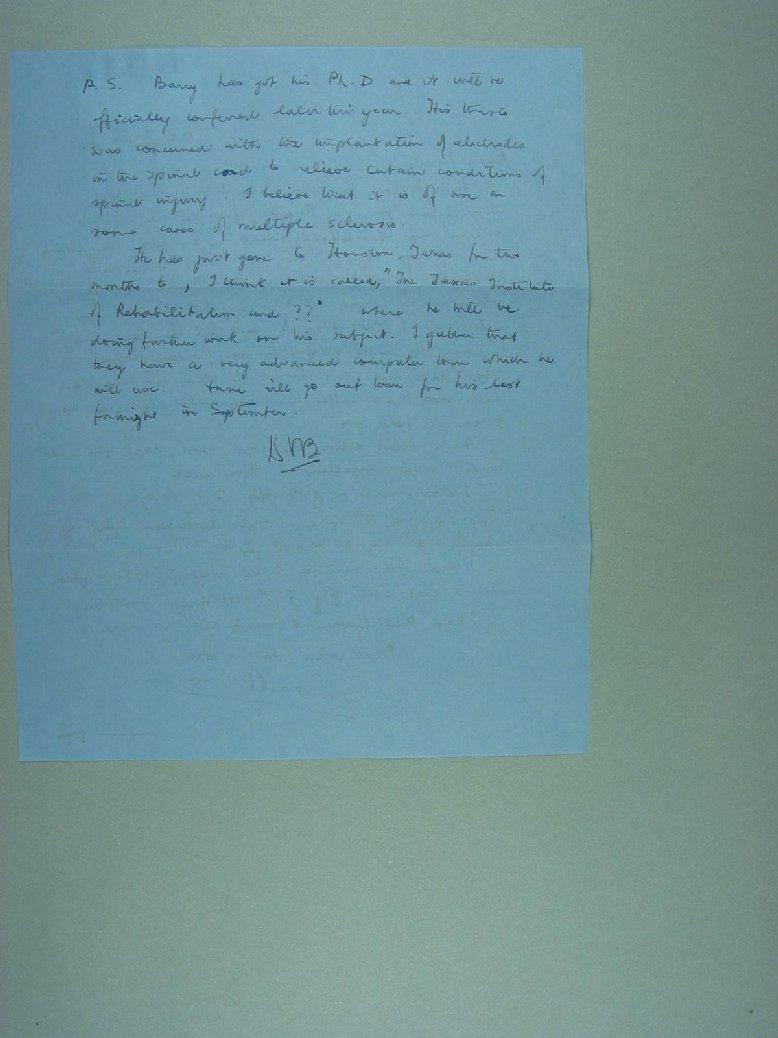 P.S. Barry has got his Ph.D and it will be
officially conferred later this year. His thesis
was concerned with the implantation of electrodes
in the spinal cord to relieve certain conditions of
spinal injury. I believe that it is of use in
some cases of multiple sclerosis.
He has just gone to Houston, Texas for two
months to, I think it is called, "The Texas Institute
of Rehabilitation and ??" where he will be
doing further work on his subject. I gather that
they have a very advanced computer there which he
will use. will go out for his last
fortnight in September.